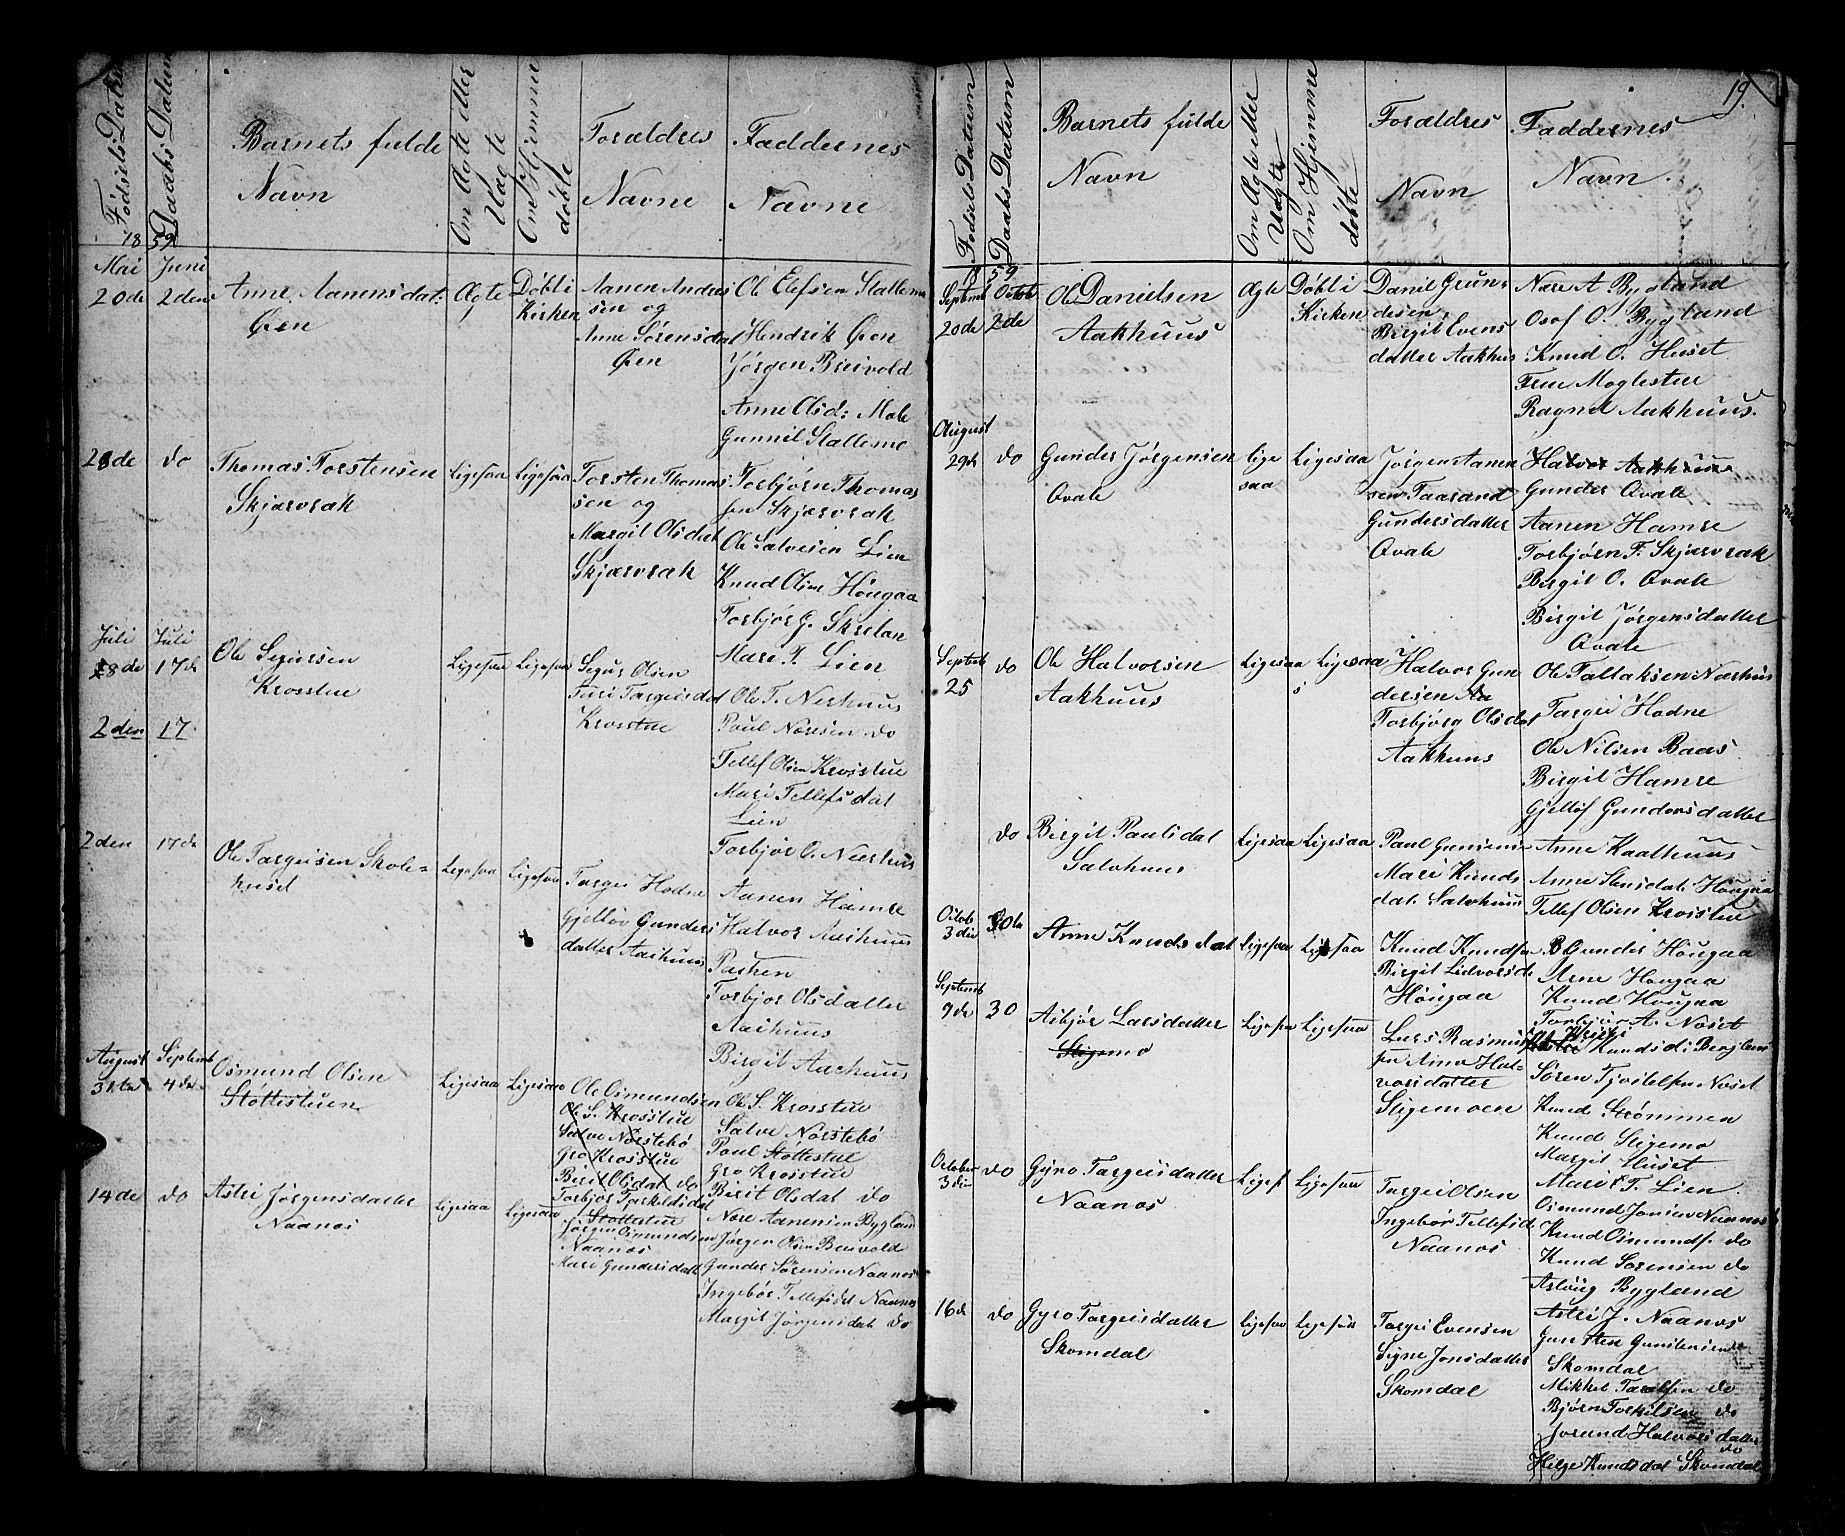 Fødsels Datum
Daabs Datum
Barnets fulde
Navn
Om Ægte eller
Uægte
Om Hjemme
døbte
Forældres
Navne
Faddernes
Navne
18 59
Mai Juni
20de 2den
Anne Aanensdat:
Øen
Ægte
Døbt i
Kirken
Aanen Andres
sen og
Anne Sørensdat
Øen
Ole Elefsen Stallemo
Hendrik Øen
Jørgen Breivold
Anne Olsd: Mole
Gunnil Stallemo
28de do
Thomas Torstensen
Skjævrak
Ligesaa
Ligesaa
Torsten Thomas
sen og
Margit Olsdat
Skjærvrak
Torbjørn Thomas
sen Skjærvrak
Ole Salvesen Lien
Knud Olsen Hougaa
Torbjør G. Skretan
Mari T. Lien
Juli Juli
8de 17de
Ole Segursen
Krosstue
Ligesaa
Ligesaa
Segur Olsen
Turi Targeisdat
Krosstue
2den 17
Ole T. Neshuus
Paul Noresen do
Tellef Olsen Krosstue
Mari Tellefsdat
Lien
Torbjør O. Neeshuus
2den 17de
Ole Targeisen Skole=
huset
Ligesaa
Ligesaa
Targei Hodne
Gjellov Gunders
datter Aashuus
Aanen Hamre
Halvor Aashuus
Pasken
Torbjor Olsdatter
Aashuus
Birgit Aashuus
August Septemb
31te 4de
Osmund Olsen
Støttestuen
Ligesaa
Ligesaa
Ole Osmundsen
Ole S. Krosstue
Salve Norstebø
Gro Krosstue
Birit Olsdat do
Torbjør Torkeldsdat
Støttestue
Ole S. Krosstue
Salve Norstebø
Paul Støttestue
Gro Krosstue
Birit Olsdat do
14de do
Astri Jørgensdatter
Naanos
Ligesaa
Ligesaa
Jørgen Osmundsen
Naanos
Mari Gundersdatt
Nore Aanensen Bygland
Jørgen Olsen Breivold
Gunder Sørensen Naanos
Ingebør Tellefsdat Naanos
Margit Jørgensdat do
19.
Fødsels Datum
Daabs Datum
Barnets fulde
Navn
Om Ægte eller
Uægte
Om Hjemme
døbte
Forældres
Navn
Faddernes
Navn.
18 59
Septemb Octob
20de 2de
Ole Danielsen
Aakhuus
Ægte
Døbt i
Kirken
Daniel Grun-
desen,
Birgit Evens
datter Aakhus
Nore A Bygland
Osof O. Bygland
Knud O. Huset
Frue Moglestue
Ragnil Aakhuus.
August
29de do
Gunder Jørgensen
Ovale
Lige
saa
Ligesaa
Jørgen Aanen
sen Taarand
Gundersdatter
Ovale
Halvor Aakhuus
Gunder Ovale
Aanen Hamre
Torbjørn T. Skjærvrak
Birgit O. Ovale
Birgit Jørgensdatter
Ovale
Septemb
25 do
Ole Halvorsen
Aakhuus
Ligesaa
Ligesaa
Halvor Gun
dersen Aa
Torbjørg Olsdat
Aakhuus
Ole Tallaksen Næshuus
Targei Hodne
Ole Nilsen Baas
Birgit Hamre
Gjelløf Gundersdatter
do
Birgit Paulsdat
Salvhuus
Ligesaa
Ligesaa
Paul Gunsten-
Mari Knuds
dat. Salvhuus
Anne Kaalhuus
Anne Stensdat: Hougaa
Tellef Olsen Krosstue
Octob
3die 30te
Anne Knudsdat
Ligesaa
Ligesaa
Knud Knudsen
Birgit Lidvorsd.
Hougaa
B Gunder Hougaa
Arne Hougaa
Knud Hougaa
Torbjør A. Noset
Septemb
9de 30
Asbjør Larsdatter
Stigmo
Ligesaa
Ligesaa
Lars Rasmus
sen Anna Hal-
vorsdatter
Stigemoen
Knudsd: Berglund
Søren Tjostelsen Noset
Knud Strømmen
Knud Stigemo
Margit Huset
October
3die do
Gyro Targeisdatter
Naanos
Liges
Ligesaa
Targei Olsen
Ingebør Tellefsd
Naanos
Mari T. Lien
Osmund Jonsen Naanos
Knud Osmunds. do
Knud Sorensen do
Aslaug Bygland
16de do
Gyro Targeisdatter
Skomdal
Ligesaa
Ligesaa
Targei Evensen
Signe Jonsdatter
Skomdal
Astri J. Naanos
Gunsten Gunstensen
Skomdal
Mikkel Taralsen do
Bjørn Torkelsen do
Jorand Halvorsdatter
do
Helge Knudsdat Skomdal